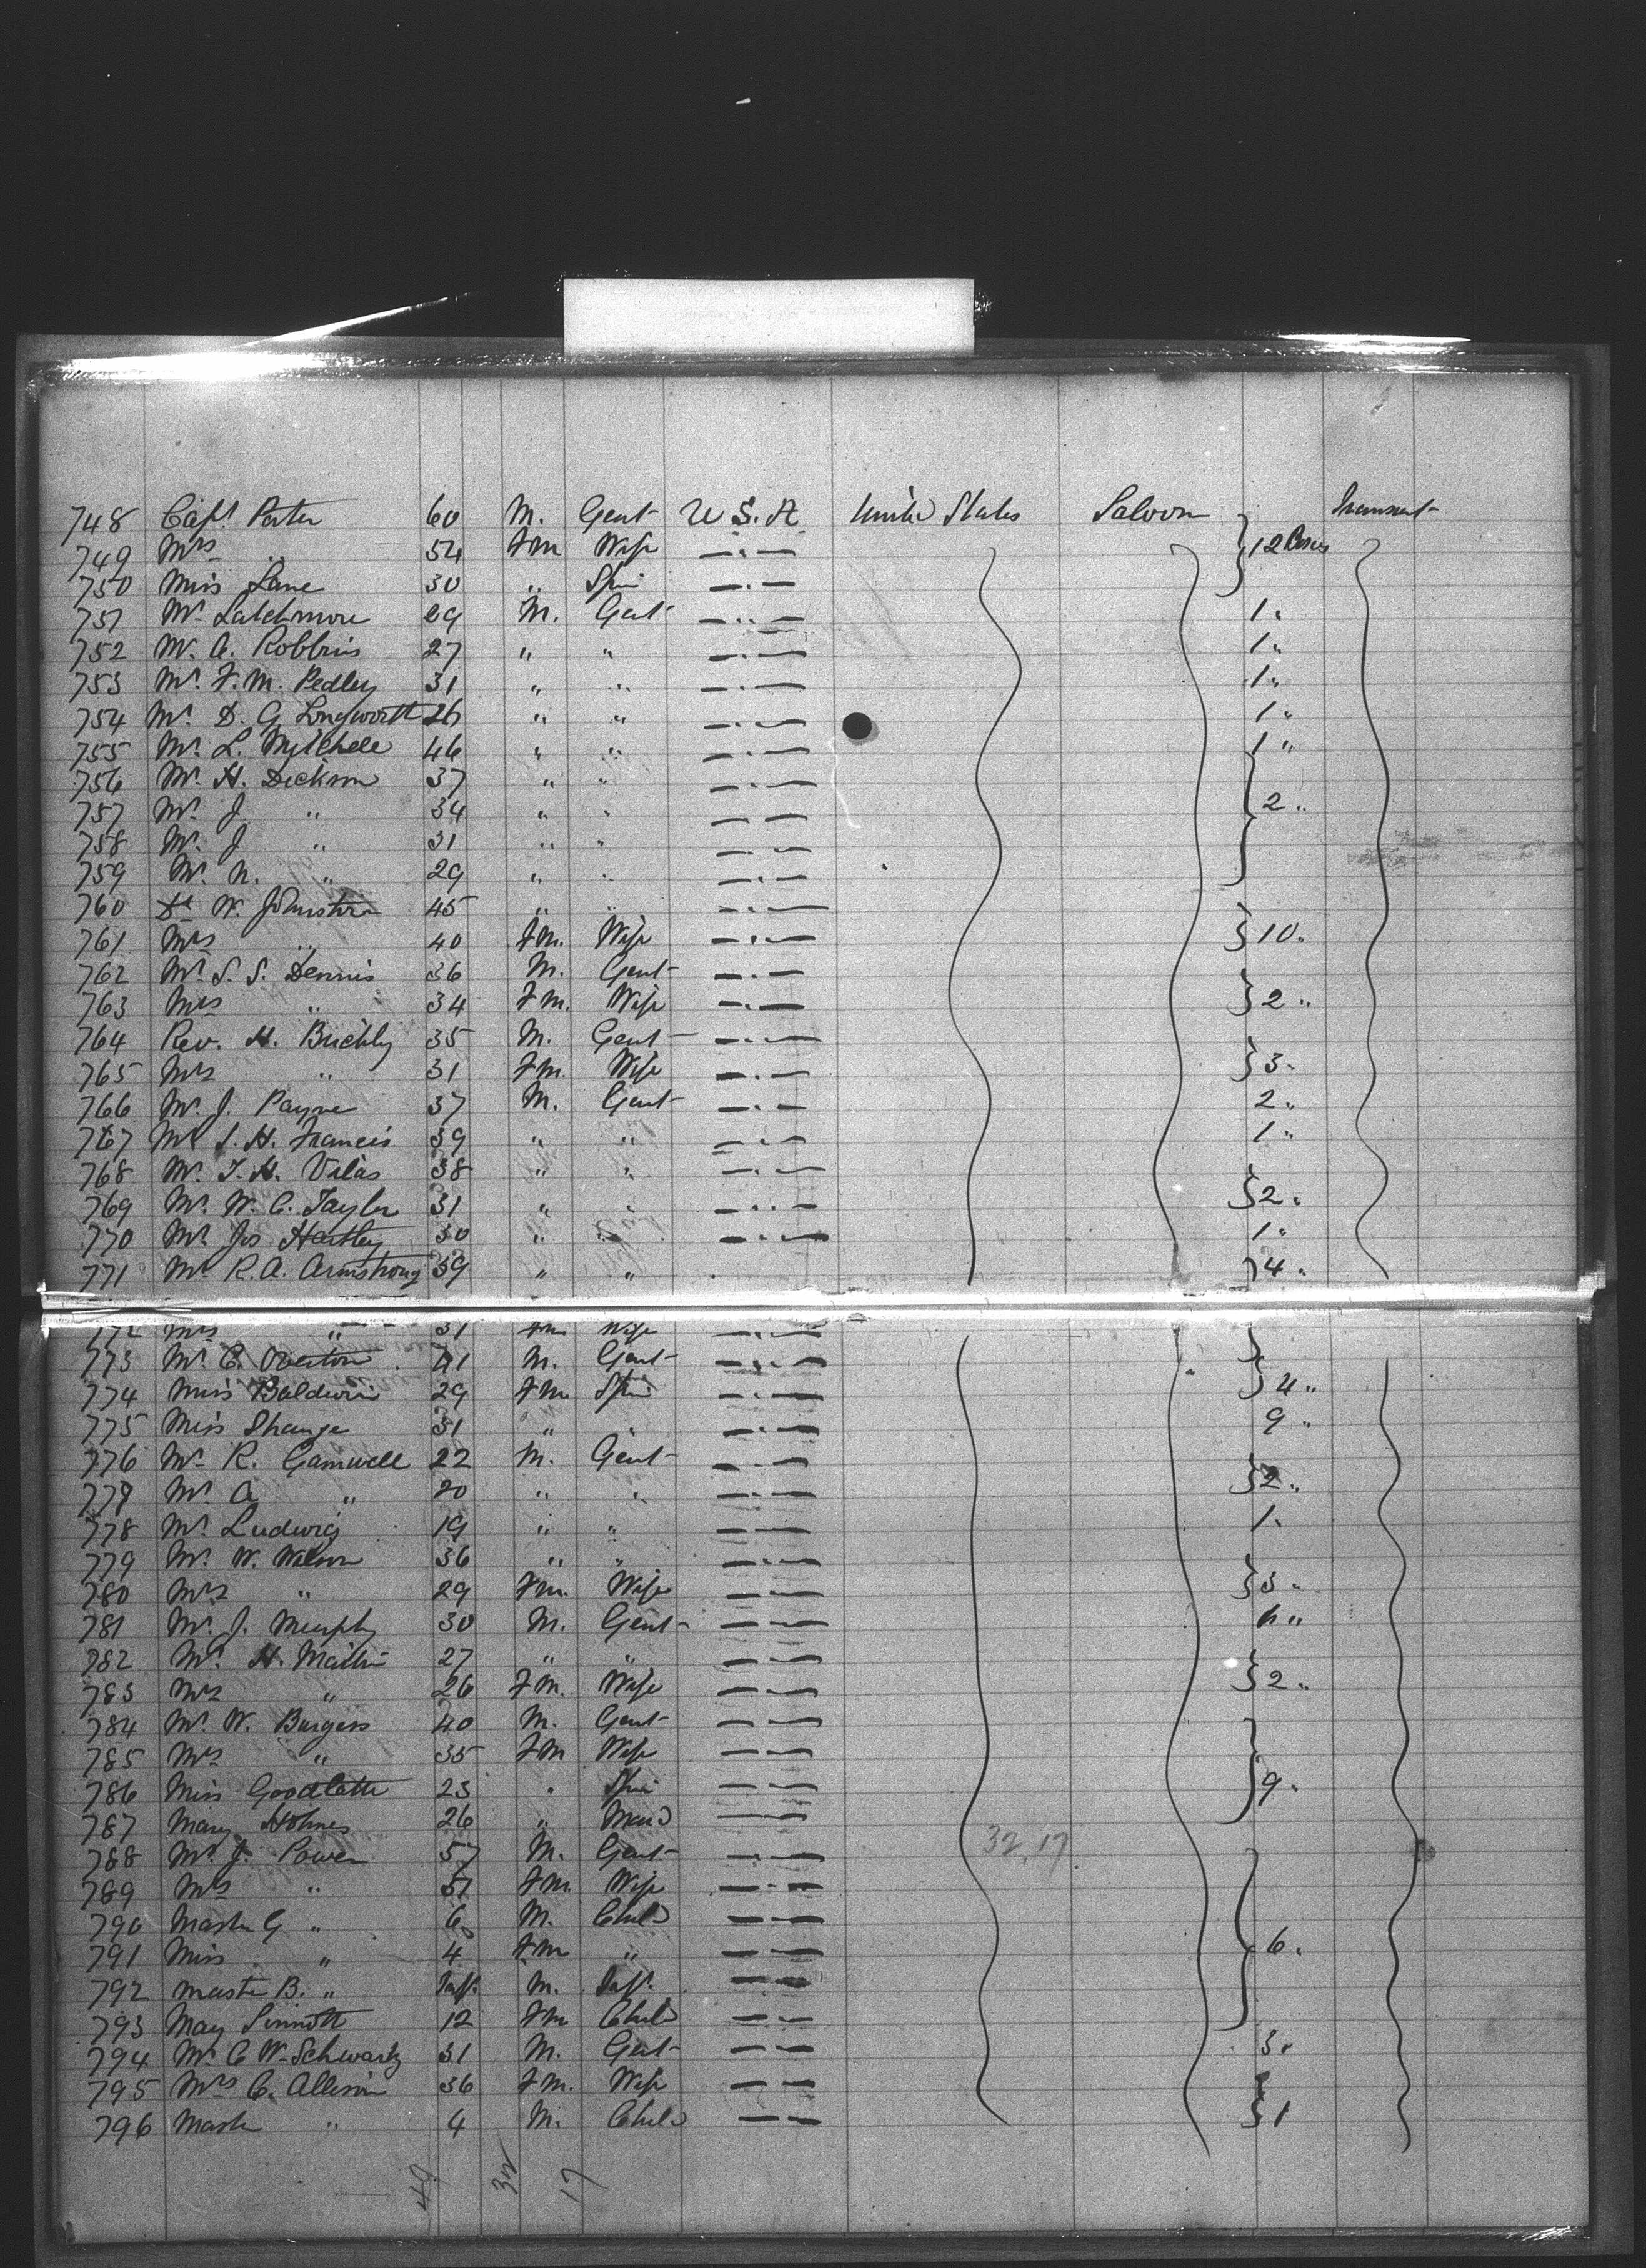 748 Capt. Porter 60 M. Gent U.S.A United States Saloon 12 Pieces Transient
749 Mrs " 54 Fm Wife
750 Miss Lane 30 " Spin
751 Mr. Latchmore 29 M. Gent 1 "
752 Mr. A. Robbins 27 " " 1 "
753 Mr. F. M. Pedley 31 " " 1 "
754 Mr. D. G. Longworth 26 " " 1 "
755 Mr. L. Mitchell 46 " " 1 "
756 Mr. H. Dickson 37 " "
757 Mr. J " 34 " " 2 "
758 Mr. J " 31 " "
759 Mr. N. " 29 " "
760 Dr W. Johnston 45 " "
761 Mrs " 40 Fm. Wife 10 "
762 Mr. S. S. Dennis 36 M. Gent
763 Mrs " 34 Fm. Wife 2 "
764 Rev. H. 35 M. Gent
765 Mrs " 31 Fm. Wife 3 "
766 Mr. J. Payne 37 M. Gent 2 "
767 Mr S. H. Francis 39 " " 1 "
768 Mr. T. H. Vilas 38 " "
769 Mr. W. C. Taylor 31 " " 2 "
770 Mr. Jos Hartley 30 " " 1 "
771 Mr R. A. Armstrong 39 " " 4 "
772 Mrs " 31 Fm Wife
773 Mr. C. Overton 41 M. Gent
774 Miss Baldwin 29 Fm Spin 4 "
775 Miss Strange 31 " " 9 "
776 Mr. R. Gamwell 22 M. Gent
777 Mr. A " 20 " " 2 "
778 Mr. Ludwig 19 " " 1 "
779 Mr. W. Watson 36 " "
780 Mrs " 29 Fm. Wife 3 "
781 Mr. J. Murphy 30 M. Gent "
782 Mr. H. Martin 27 " "
783 Mrs " 26 Fm. Wife 2 "
784 Mr. W. Burgess 40 M. Gent
785 Mrs " 35 Fm Wife
786 Miss Goodlatte 23 " Spin 9 "
787 Mary Holmes 26 " Maid
788 Mr. J. Power 57 M. Gent 32.17
789 Mrs " 37 Fm. Wife
790 Master G " 6 M. Child
791 Miss " 4 Fm " 6 "
792 Master B. " Inft. M. Inft.
793 May Sinnott 12 Fm Child
794 Mr C W. Schwartz 31 M. Gent 3 "
795 Mrs C. Allison 36 Fm. Wife
796 Master " 4 M. Child 1
49 32 17